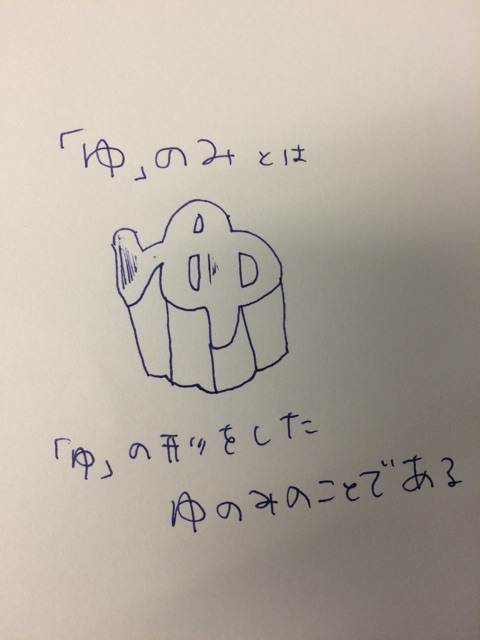 「ゆ」のみとは
「ゆ」の形をした
ゆのみのことである